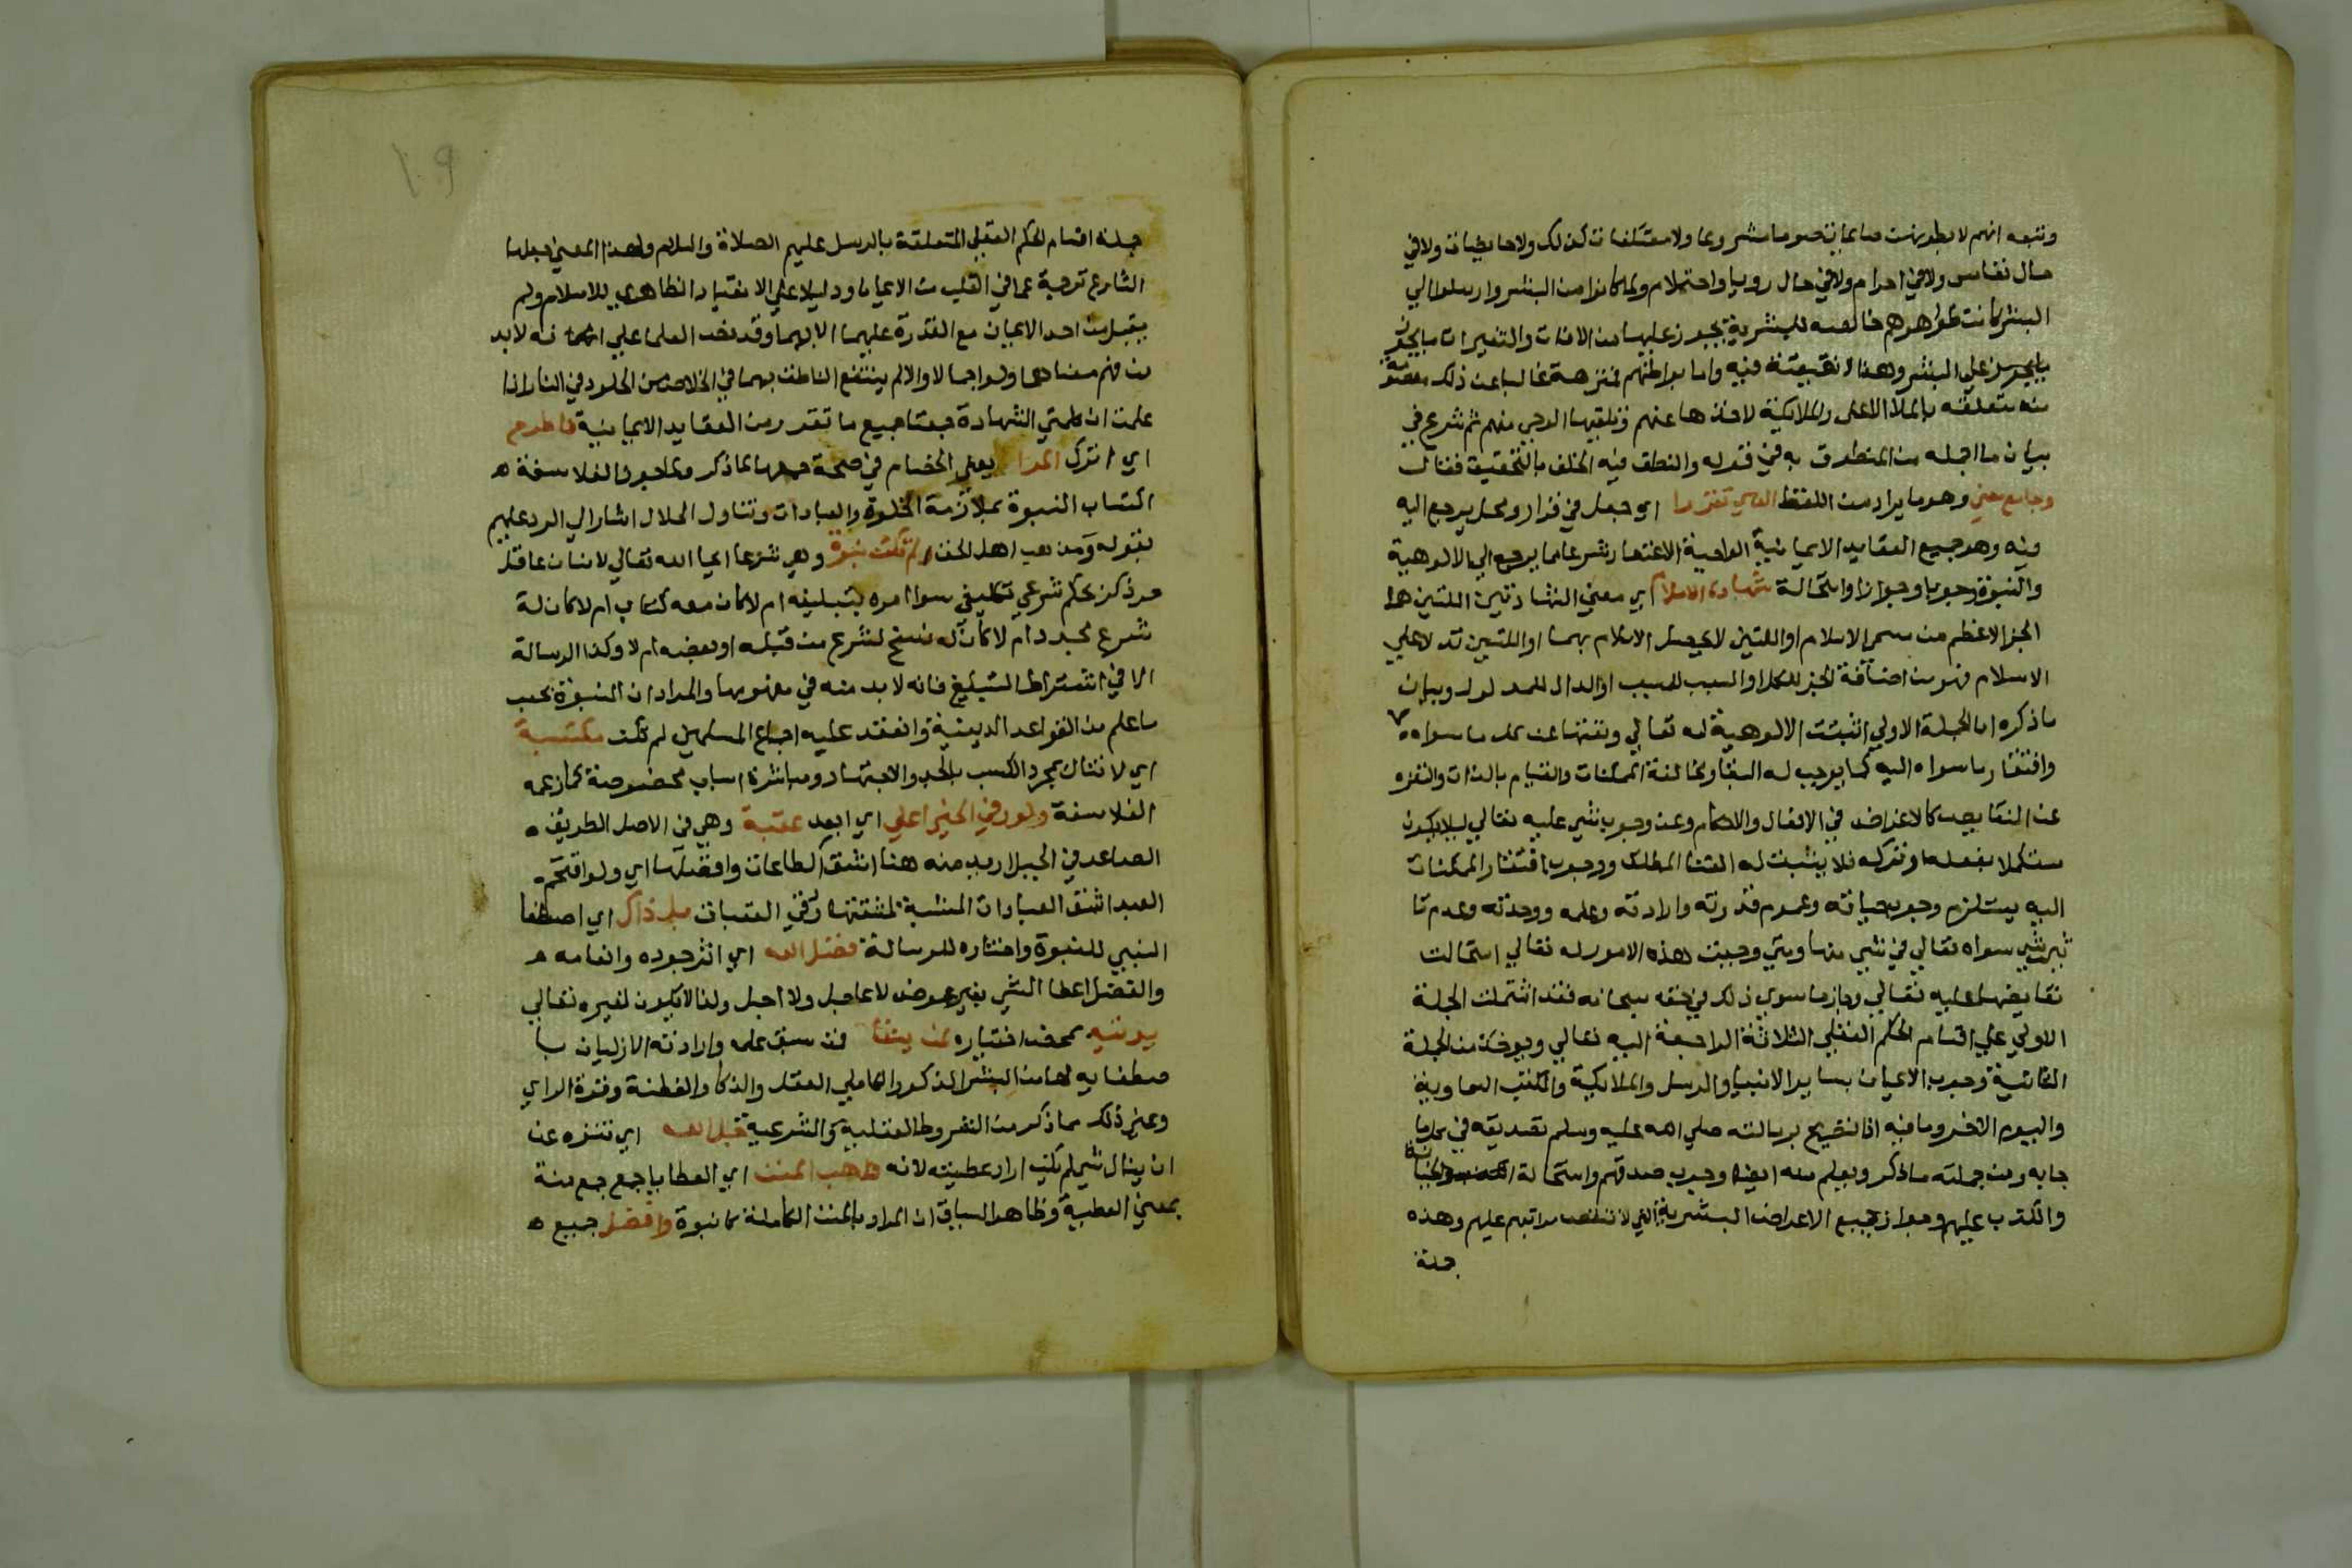 ونبه انهم لا يطوون صايمات صوما مشروعا ولا معتكفات كذلك ولا حايضات ولا في
حال نفاس ولا في احرام ولا في حال رويا واحتلام ولما كانوا من البشر وارسلوا الي
البشر كانت ظواهرهم خالصه للبشرية يجوز عليها من الافات والتغيرات ما يجوز
علي البشر وهذا لا نقيصة فيه واما بواطنهم فمنزهة غالبا عن ذلك معصومة
منه متعلقه بالملا الاعلى والملايكة لاخذها عنهم وتلقيها الوحي منهم ثم شرع في
بيان ما اجمله من المنطوق به في قوله والنطق فيه الخلف بالتحقيق فقال
وجامع معني وهو ما يراد من اللفظ الذي تقررا اي جعل في قرار ومحل يرجع اليه
فيه وهو جميع العقايد الايمانية الواجبة الاعتقاد شرعا مما يرجع الي الالوهية
والنبوة وجوبا وجوازا واستحالة شهادتا الاسلام اي معني الشهادتين اللتين هما
الجز الاعظم من مسمى الاسلام او اللتين لا يحصل الاسلام بهما او اللتين تدلا علي
الاسلام فهو من اضافة الجز للكل او السبب للمسبب او الدال للمدلول وبيان
ما ذكره ان الجملة الاولي اثبتت الالوهية له تعالي ونفتها عن كل ما سواه
وافتقار ما سواه اليه كما يوجب له البقا ومخالفة الممكنات والقيام بالذات والتنزه
عن النقايص كالاغراض في الافعال والاحكام وعن وجوب شي عليه تعالي ليلا يكون
مستكملا بفعله او تركه فلا يثبت له الغنا المطلق ووجوب افتقار الممكنات
اليه يستلزم وجوب حياته وعموم قدرته وارادته وعلمه ووحدته وعدم تا
ثير شي سواه تعالي في شي منها ومتي وجبت هذه الامور له تعالي استحالت
نقايضها عليه تعالي وجاز ما سوي ذلك في حقه سبحانه فقد اشتملت الجملة
الاولي علي اقسام الحكم العقلي الثلاثة الراجعة اليه تعالي ويوخذ من الجملة
الثانية وجوب الايمان بساير الانبيا والرسل والملايكة والكتب السماوية
واليوم الاخر وما فيه اذ التصريح برسالته صلي الله عليه وسلم تصديقه في كل ما
جا به ومن جملته ما ذكر ويعلم منه ايضا وجوب صدقهم واستحالة الخيانة
والكذب عليهم وجواز جميع الاعراض البشرية التي لا تنقص مراتبهم عليهم وهذه
جملة
١٠٩
جملة اقسام الحكم العقلي المتعلقة بالرسل عليهم الصلاة والسلام ولهذا المعني جعلها
الشارع ترجمة عما في القلب من الايمان ودليلا علي الانقياد الظاهري للاسلام ولم
يقبل من احد الايمان مع القدرة عليهما الا بهما وقد نص العلما علي انه لا بد
من فهم معناهما ولو اجمالا والا لم ينتفع الناطق بهما في الخلاص من الخلود في النار اذا
علمت ان كلمتي الشهادة جمعتا جميع ما تقرر من العقايد الايمانية فاطرح
اي اترك المرا يعني الخصام في صحة جمعهما لما ذكر ولما جوز الفلاسفة
اكتساب النبوة بملازمة الخلوة والعبادات وتناول الحلال اشار الي الرد عليهم
بقوله ومذهب اهل الحق ولم تكن نبوة وهي شرعا ايحا الله تعالي لانسان عاقل
حر ذكر بحكم شرعي تكليفي سوا امره بتبليغه ام لا كان معه كتاب ام لا كان له
شرع مجدد ام لا كان له نسخ لشرع من قبله او بعضه ام لا وكذا الرسالة
الا في اشتراط التبليغ فانه لا بد منه في مفهومها والمراد ان النبوة بحسب
ما علم من القواعد الدينية وانعقد عليه اجماع المسلمين لم تكن مكتسبة
اي لا تنال بمجرد الكسب بالجد والاجتهاد ومباشرة اسباب مخصوصة كما زعمه
الفلاسفة ولو رقي في الخير اعلي اي ابعد عقبة وهي في الاصل الطريق
الصاعد في الجبل اريد منه هنا اشق الطاعات وافضلها اي ولو اقتحم
العبد اشق العبادات المشبهة لمشقتها رقي العقبات بل ذاك اي اصطفا
النبي للنبوة واختاره للرسالة فضل الله اي اثر جوده وانعامه
والفضل اعطا الشي بغير عوض لا عاجل ولا اجل ولذا لا يكون لغيره تعالي
يوتيه بمحض اختياره لمن يشا فمن سبق علمه وارادته الازليان با
صطفايه لها من البشر الذكور الكاملي العقل والذكا والفطنة وقوة الراي
وغير ذلك مما ذكر من الشروط العقلية والشرعية جل الله اي تنزه عن
ان ينال شي لم يكن اراد عطيته لانه واهب المنن اي العطايا جمع منة
بمعني العطية وظاهر السياق ان المراد بالمنن الكاملة كالنبوة وافضل جميع